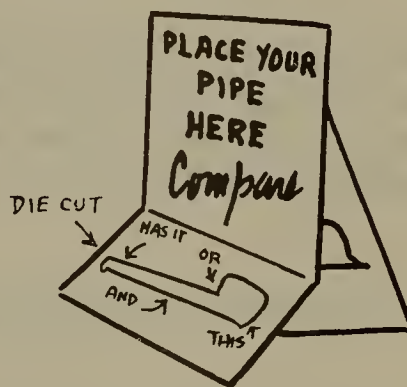 PLACE YOUR
PIPE
HERE
Compare
DIE CUT
HAS IT
OR
AND
THIS